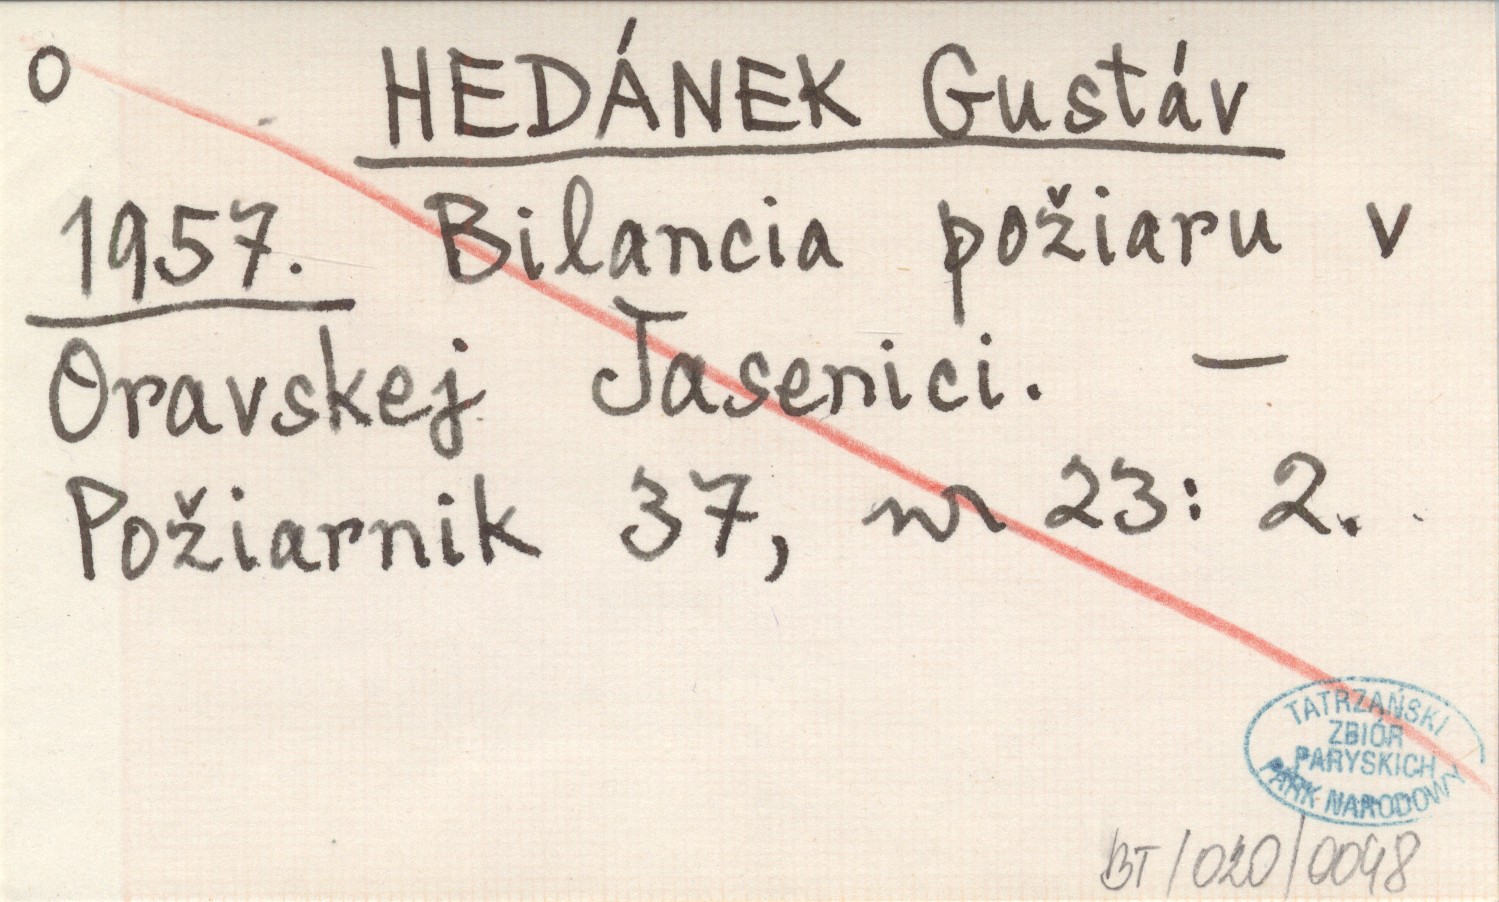 O HEDÁNEK Gustáv
1957. Bilancia požiaru v
Oravskej Jasenici. —
Požiarnik 37, nr 23: 2.
TATRZAŃSKI
ZBIÓR
PARYSKICH
PARK NARODOWY
BT/020/0048